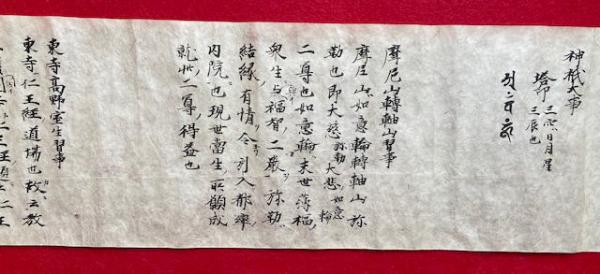 神祇大事
塔印 三光日月星
三辰也
摩尼山轉軸山習事
摩尼山如意輪轉軸山弥
勒也即大慈弥勒大悲如意輪
二尊也如意輪末世薄福
衆生与福智二嚴弥勒
結縁有情令引入都率
内院也現世當生所願成
就此二尊得益也
東寺高野室生習事
東寺仁王經道場也故云教